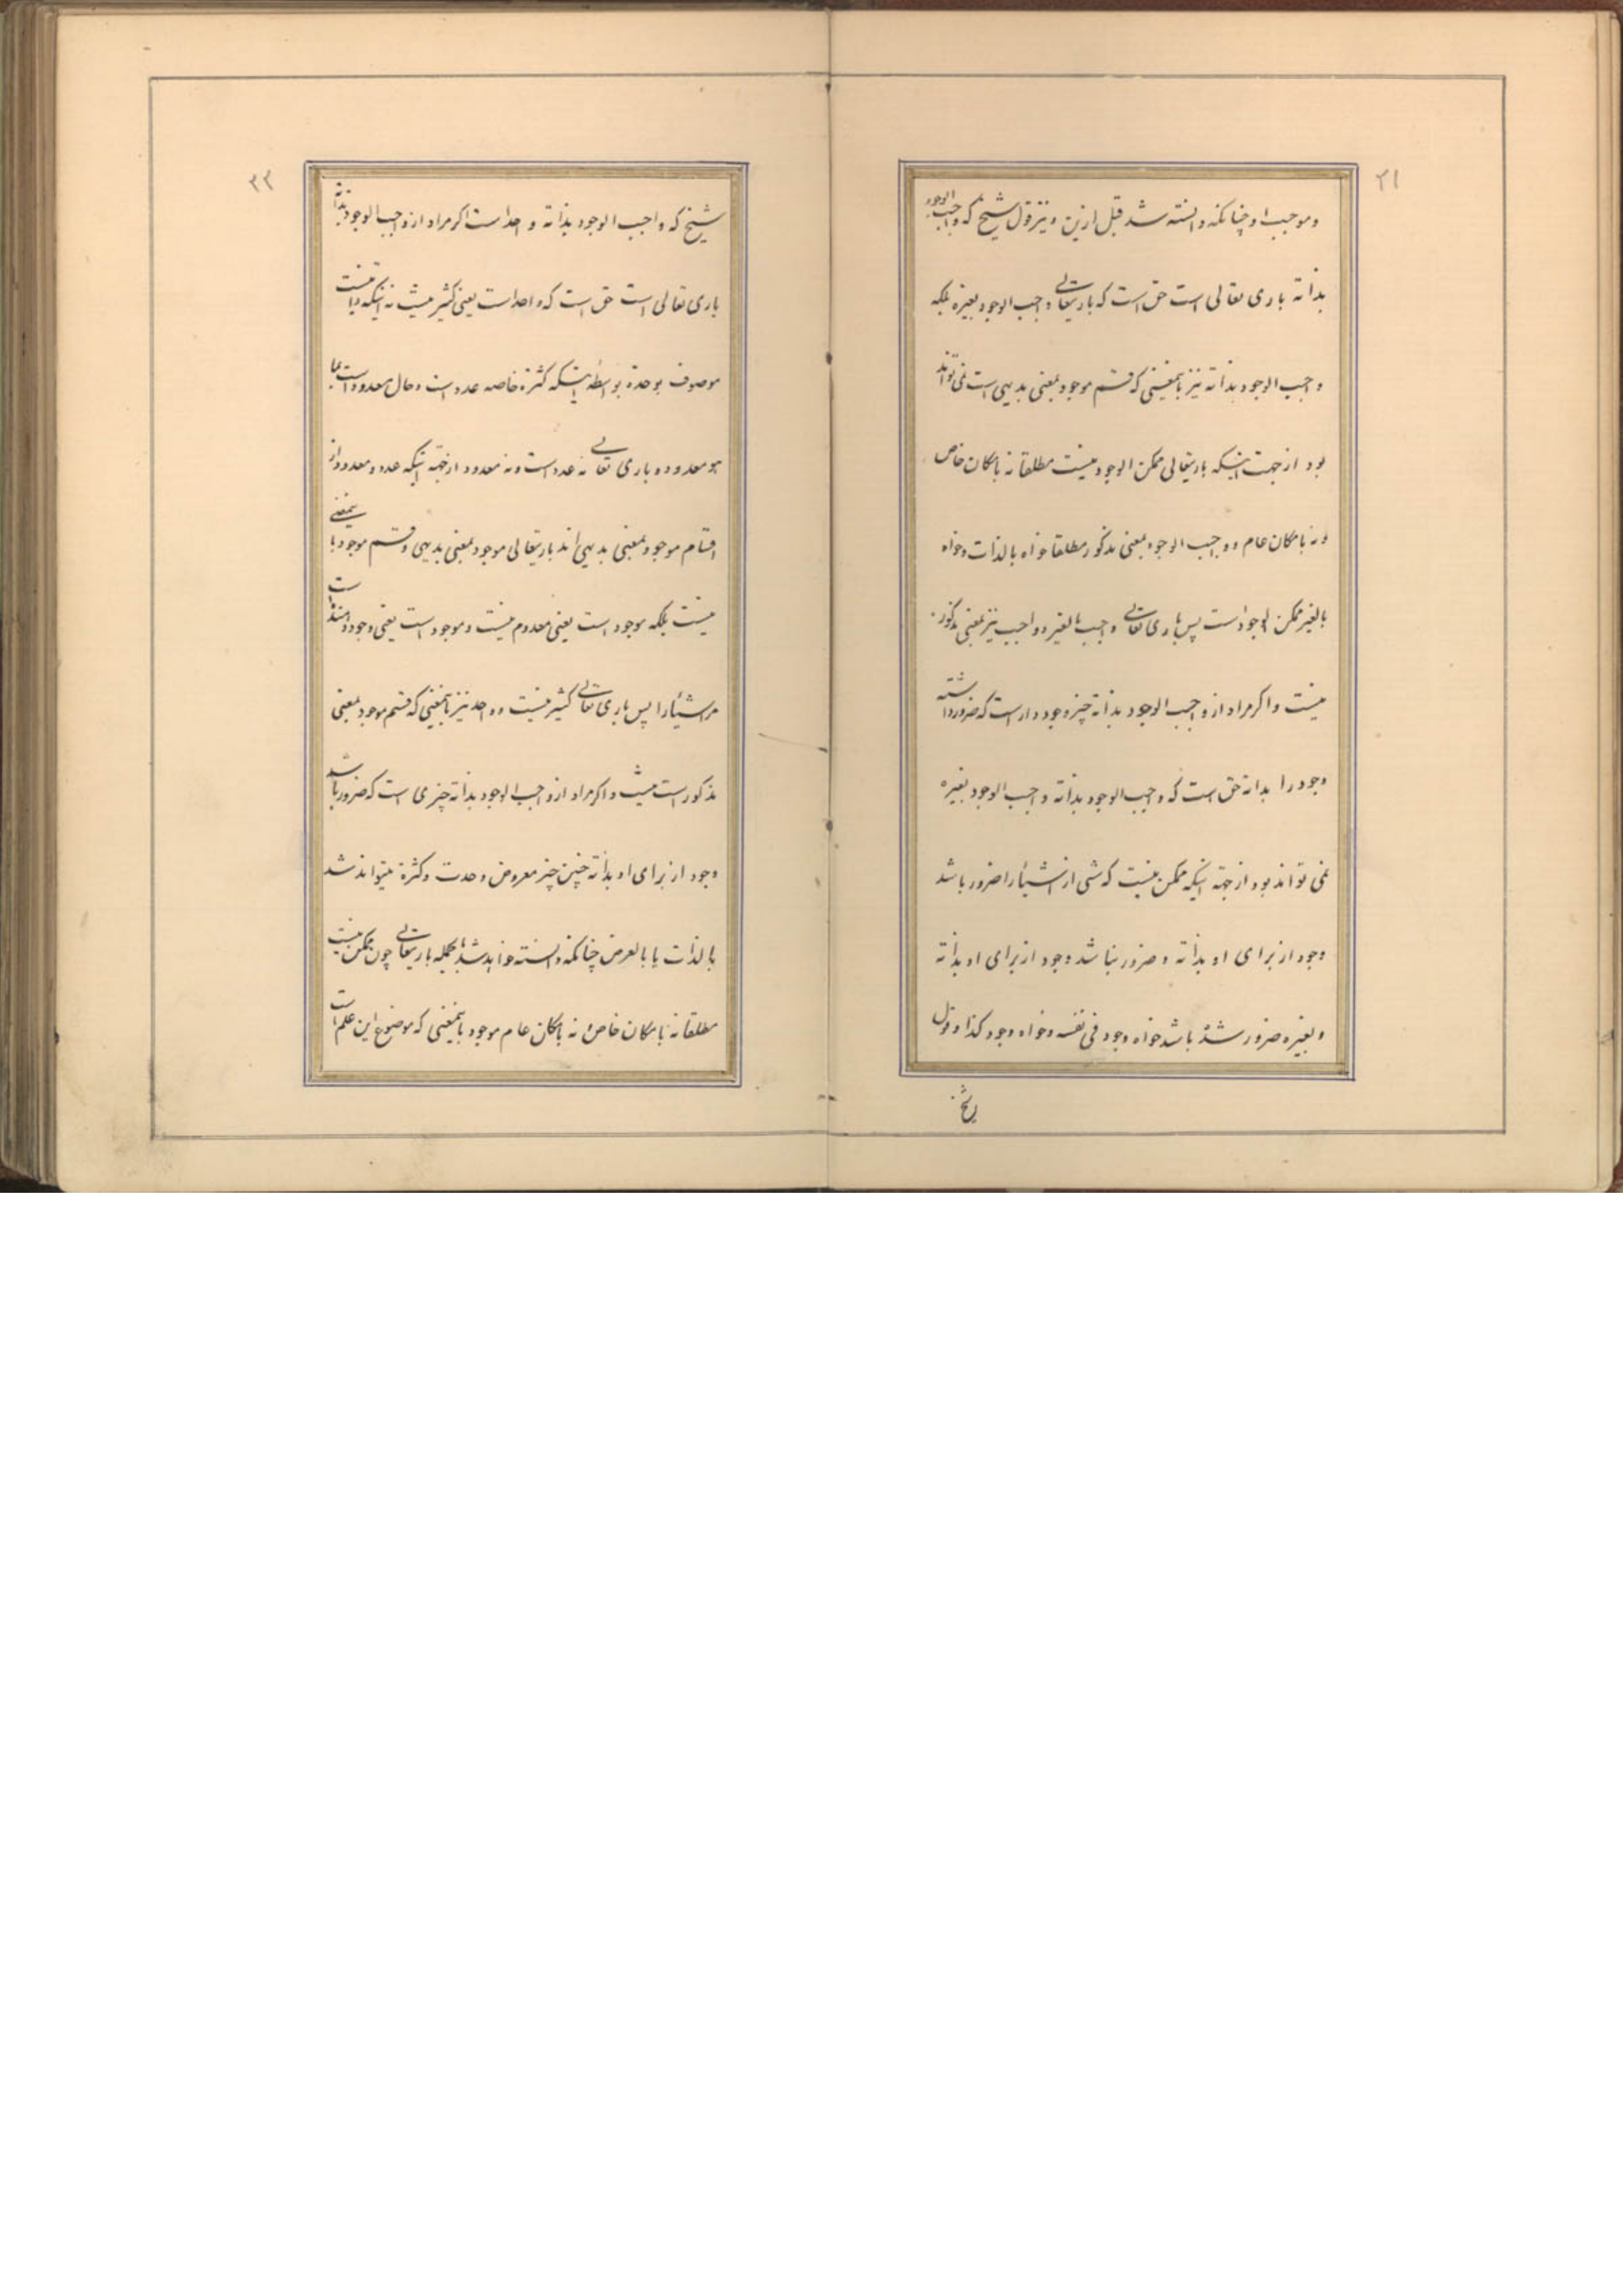 ۲۱
و موجب او چنانکه دانسته شد قبل ازین و نیز قول شیخ که واجب الوجود
بذاته باری تعالی است حق است که باریتعالی واجب الوجود بغیره بلکه
واجب الوجود بذاته نیز بآنمعنی که قسم موجود بمعنی بدیهی است نمی تواند
بود از جهت اینکه باریتعالی ممکن الوجود نیست مطلقا نه بامکان خاص
و نه بامکان عام و واجب الوجود بمعنی مذکور مطلقا خواه بالذات و خواه
بالغیر ممکن الوجود است پس باری تعالی واجب بالغیر و واجب نیز بمعنی مذکور
نیست و اکر مراد از واجب الوجود بذاته چیز وجود دار است که ضرور داشته
وجود را بذاته حق است که واجب الوجود بذاته واجب الوجود بغیره
نمی تواند بود از جهة اینکه ممکن نیست که شی از اشیا را ضرور باشد
وجود از برای او بذاته و ضرور نباشد وجود از برای او بذاته
و بغیره ضرور شده باشد خواه وجود فی نفسه و خواه وجود کذا و قول
شیخ
۲۲
شیخ که واجب الوجود بذاته واحد است اکر مراد از واجب الوجود بذاته
باری تعالی است حق است که واحد است یعنی کثیر نیست نه اینکه ذاتیست
موصوف بوحدة بواسطه اینکه کثرة خاصه عدد است و حال معدود است بما
هو معدود و باری تعالی نه عدد است و نه معدود از جهة اینکه عدد و معدود از
اقسام موجود بمعنی بدیهی اند باریتعالی موجود بمعنی بدیهی و قسم موجود باینمعنی
نیست بلکه موجود است یعنی معدوم نیست و موجود است یعنی وجود دهنده است
مر اشیا را پس باری تعالی کثیر نیست و واحد نیز بآنمعنی که قسم موجود بمعنی
مذکور است نیست و اکر مراد از واجب الوجود بذاته چیزی است که ضرور باشد
وجود از برای او بذاته چنین چیز معروض وحدت و کثرة میتواند شد
بالذات یا بالعرض چنانکه دانسته خواهد شد بالجمله باریتعالی چون ممکن نیست
مطلقا نه بامکان خاص و نه بامکان عام موجود باینمعنی که موضوع این علم است